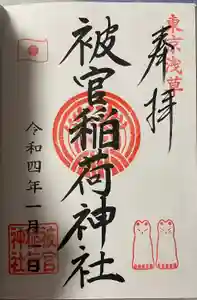 東京浅草
奉拝
被官稲荷神社
令和四年一月一日
被官稲荷神社